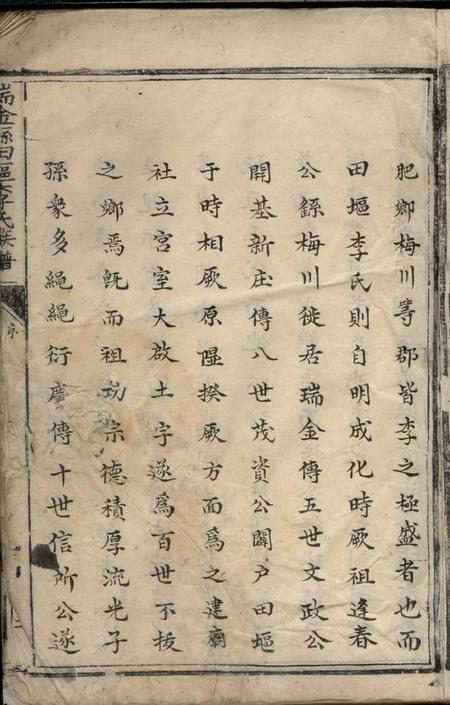 肥鄉梅川等郡皆李之極盛者也而
田塸李氏則自明成化時厥祖逢春
公繇梅川徙居瑞金傳五世文政公
開基新庄傳八世茂資公闢戶田塸
于時相厥原隰揆厥方面爲之建廟
社立宮室大啟土宇遂爲百世不拔
之鄉焉旣而祖功宗德積厚流光子
孫衆多繩繩衍慶傳十世信所公遂
瑞金縣田塸李氏族譜
序
二